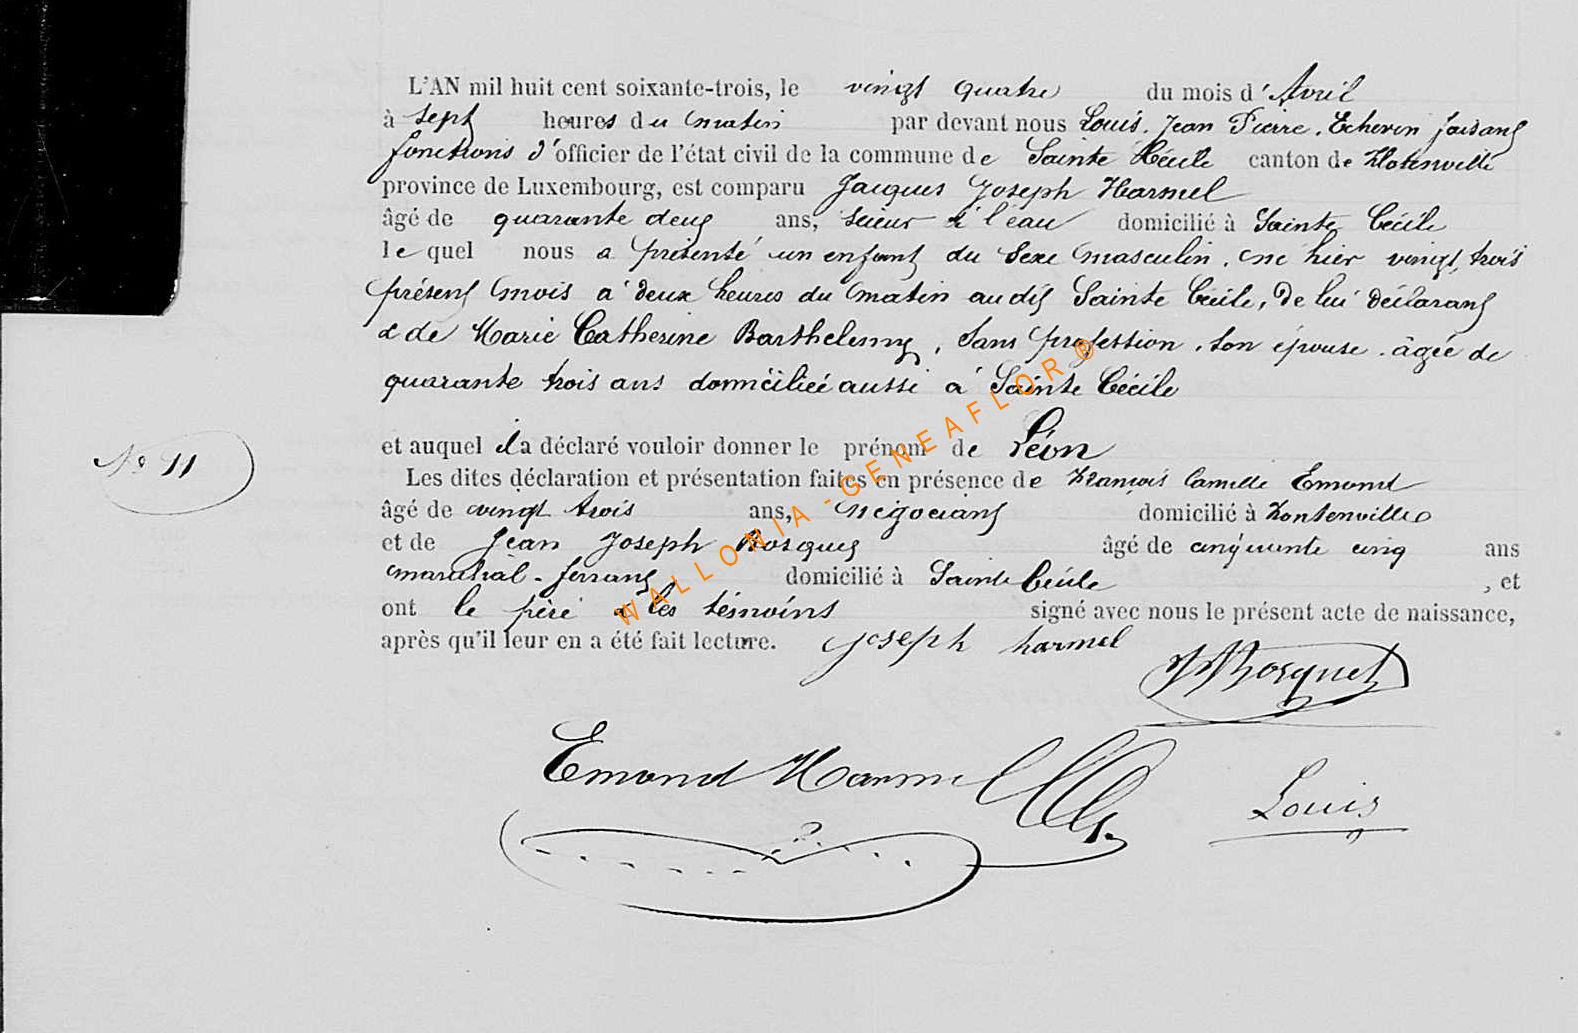 L'AN mil huit cent soixante-trois, le vingt quatre du mois d'Avril
à sept heures du matin par devant nous Louis, Jean Pierre, Echevin faisant
fonctions d'officier de l'état civil de la commune de Sainte Cécile canton de Florenville
province de Luxembourg, est comparu Jacques Joseph Harmel
âgé de quarante deux ans, scieur à l'eau domicilié à Sainte Cécile
le quel nous a présenté un enfant du sexe masculin, né hier vingt trois
présent mois à deux heures du matin au dit Sainte Cécile, de lui déclarant
& de Marie Catherine Barthelemy, sans profession, son épouse, âgée de
quarante trois ans domiciliée aussi à Sainte Cécile
et auquel il a déclaré vouloir donner le prénom de Léon
N° 11
Les dites déclaration et présentation faites en présence de François Camille Emond
âgé de vingt trois ans, négociant domicilié à Fontenville
et de Jean Joseph Bosquet âgé de cinquante cinq ans
maréchal-ferrant domicilié à Sainte Cécile, et
ont le père & les témoins signé avec nous le présent acte de naissance,
après qu'il leur en a été fait lecture. joseph harmel
JJBosquet
Emond Harmel
Louis
WALLONIA-GENEAFLOR®